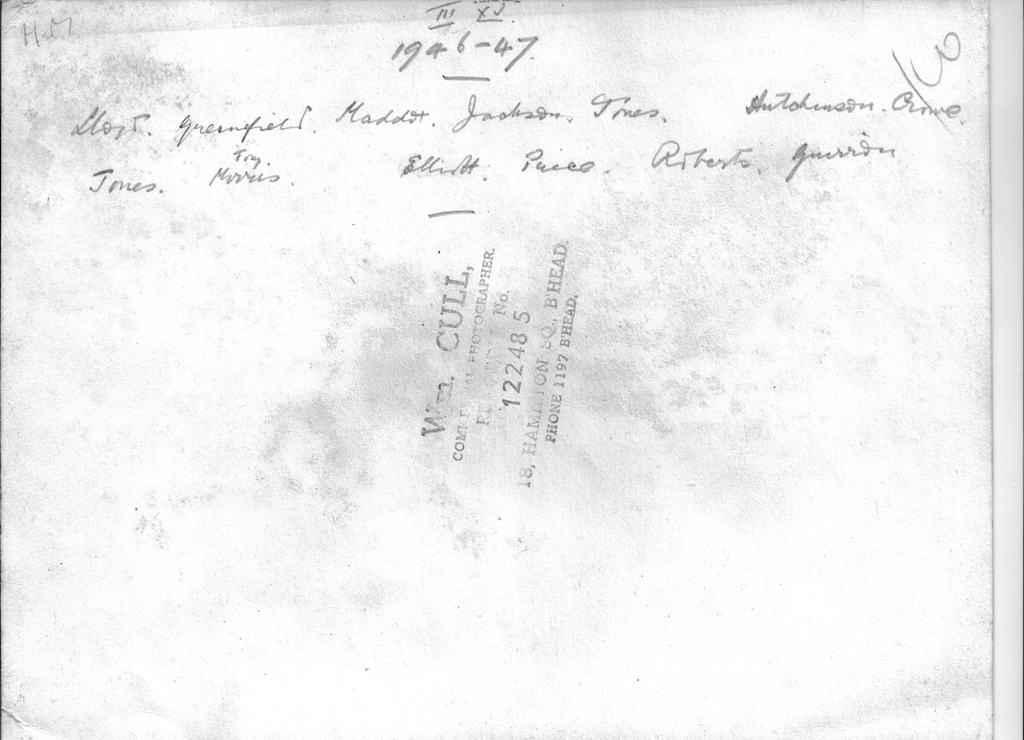 H.M
III XV.
1946-47.
Lloyd. Greenfield. Maddox. Jackson. Jones. Hutchinson. Crowe.
Jones. Morris. Elliott. Price. Roberts.
Wm. CULL,
PHOTOGRAPHER.
No.
122485
18, HAMILTON SQ., B'HEAD.
PHONE 1197 B'HEAD.